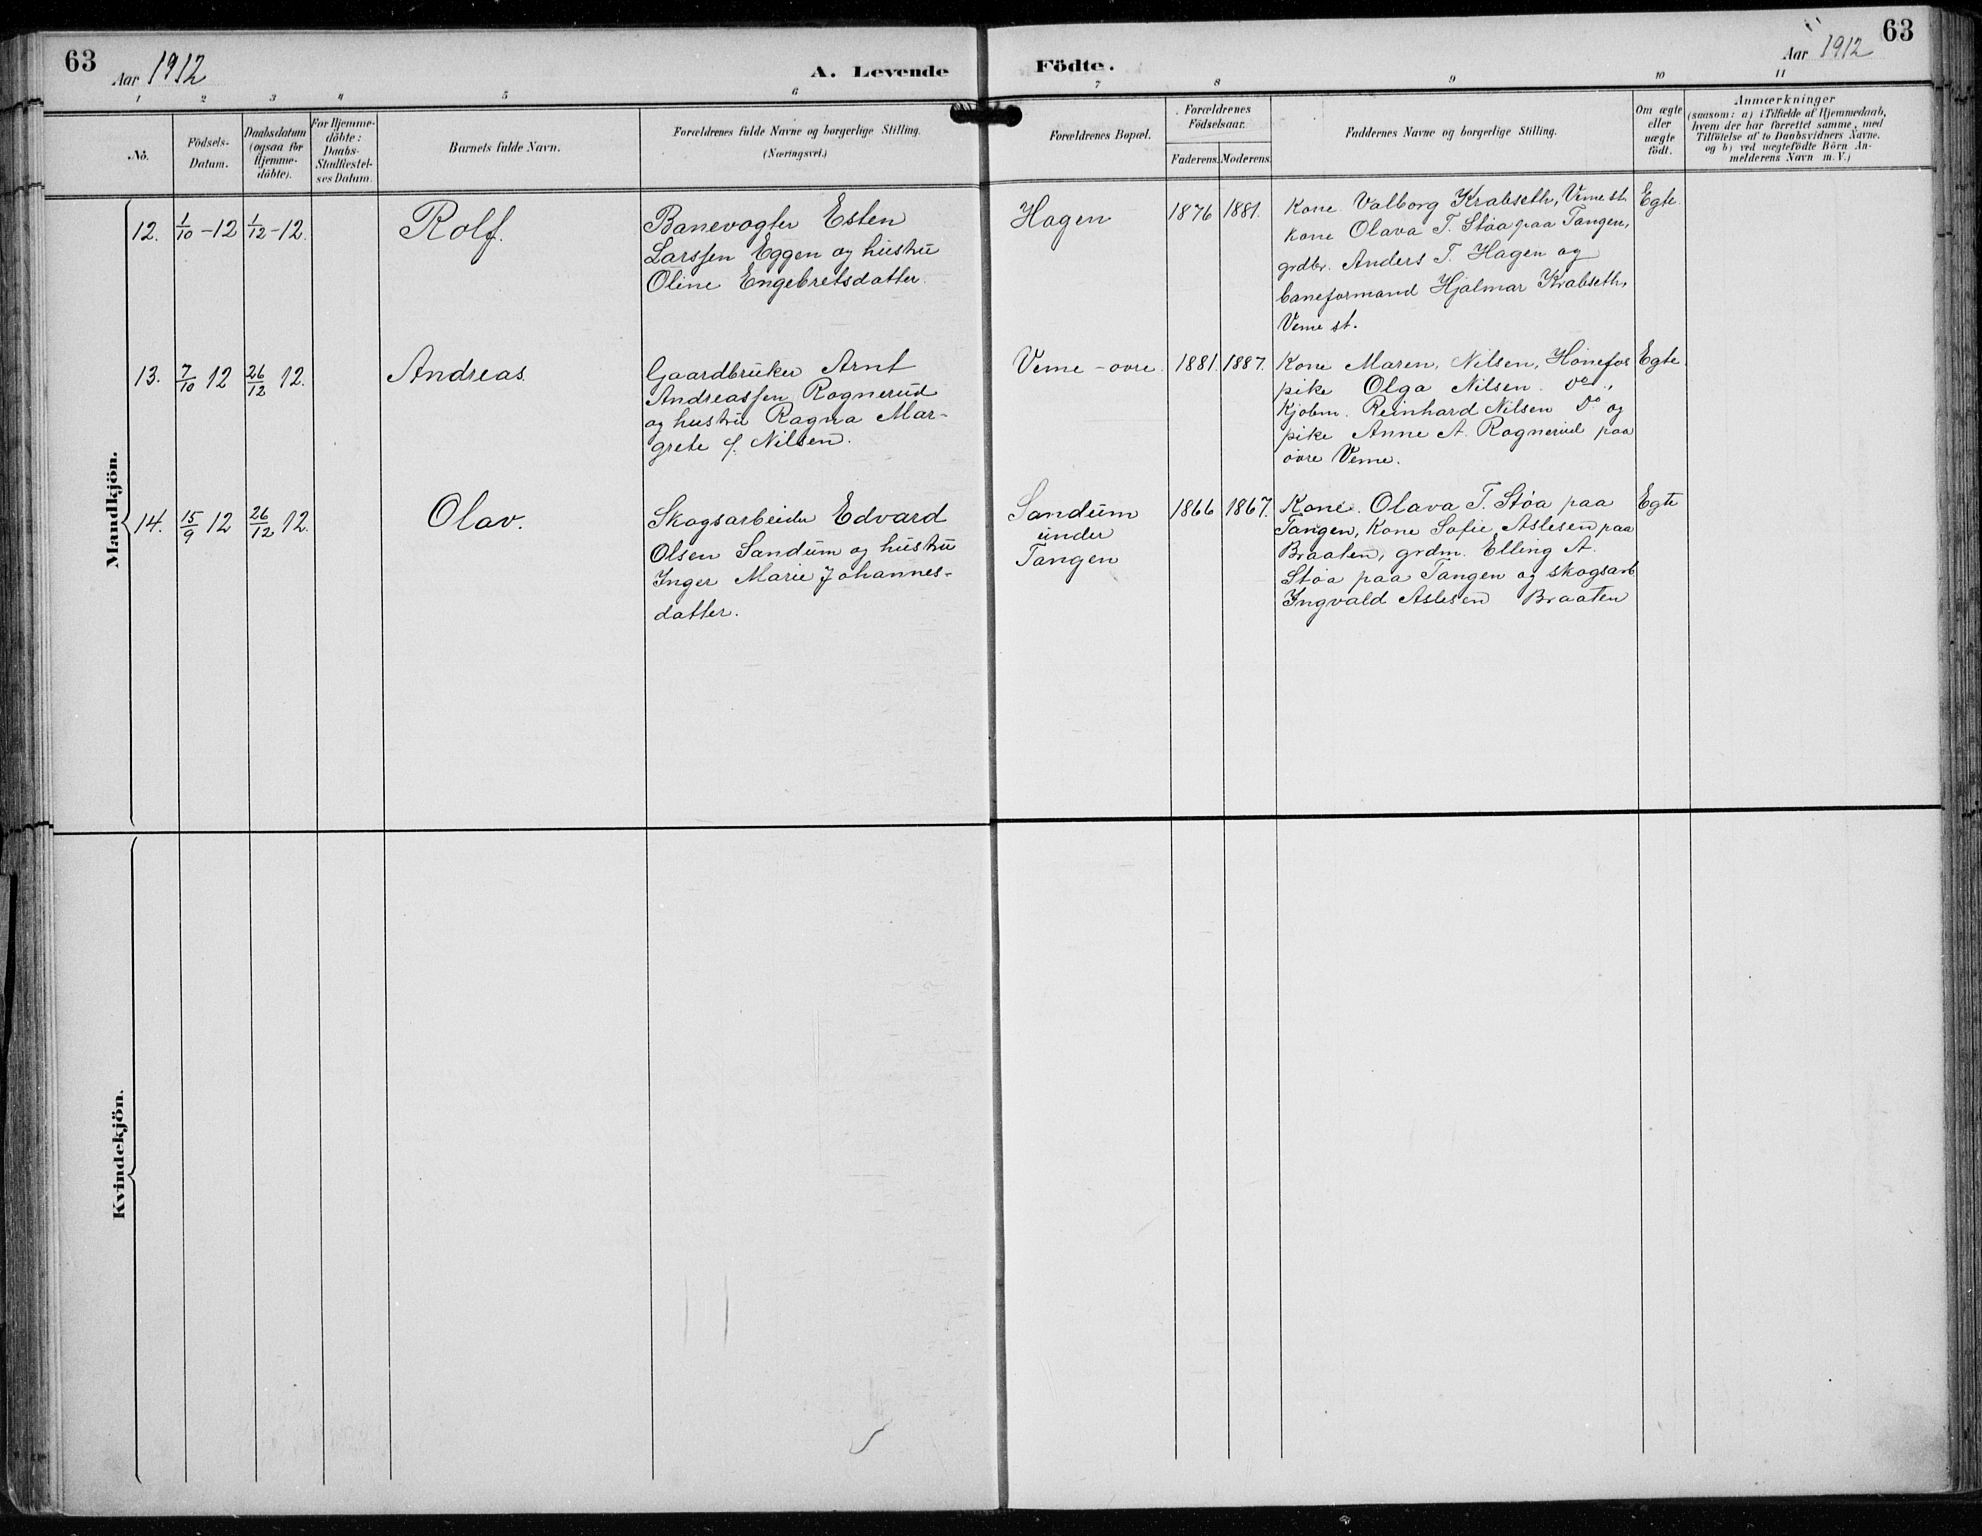 63
Aar 1912
A. Levende
Födte.
Aar 1912
63
1 2 3 4 5 6 7 8 9 10 11
No.
Födsels-
Datum.
Daabsdatum
(ogsaa for
Hjemme-
döbte).
For Hjemme-
döbte:
Daabs-
Stadfæstel-
ses Datum.
Barnets fulde Navn.
Forældrenes fulde Navne og borgerlige Stilling.
(Næringsvei.)
Forældrenes Bopæl.
Forældrenes
Födselsaar.
Faderens. Moderens.
Faddernes Navne og borgerlige Stilling.
Om ægte
eller
uægte
födt.
Anmærkninger
(saasom: a) i Tilfælde af Hjemmedaab,
hvem der har forrettet samme, med
Tilföielse af to Daabsvidners Navne.
og b) ved uægtefödte Börn An-
melderens Navn m. V.)
Mandkjön.
12. 1/10 - 12 1/12 - 12.
Rolf.
Banevogter Esten
Larssen Eggen og hustru
Oline Engebretsdatter.
Hagen
1876 1881.
Kone Valborg Krabseth, Veme st.
Kone Olava T. Støa paa Tangen,
grdbr. Anders T. Hagen og
baneformand Hjalmar Krabseth,
Veme st.
Egte.
13. 7/10 12 26/12 12.
Andreas.
Gaardbruker Arnt
Andreassen Rognerud
og hustru Ragna Mar-
grete f. Nilsen.
Veme - øvre.
1881. 1887.
Kone Maren Nilsen, Hönefos
pike Olga Nilsen. Do.,
Kjøbm. Reinhard Nilsen Do. og
pike Anne A. Rognerud paa
øvre Veme.
Egte.
14. 15/9 12 26/12 12.
Olav.
Skogsarbeider Edvard
Olsen Sandum og hustru
Inger Marie Johannes-
datter.
Sandum
under
Tangen
1866 1867.
Kone. Olava T. Støa paa
Tangen, Kone Sofie Aslesen paa
Braaten, grdm. Elling A.
Støa paa Tangen og skogsarb
Ingvald Aslesen Braaten
Egte
Kvindekjön.